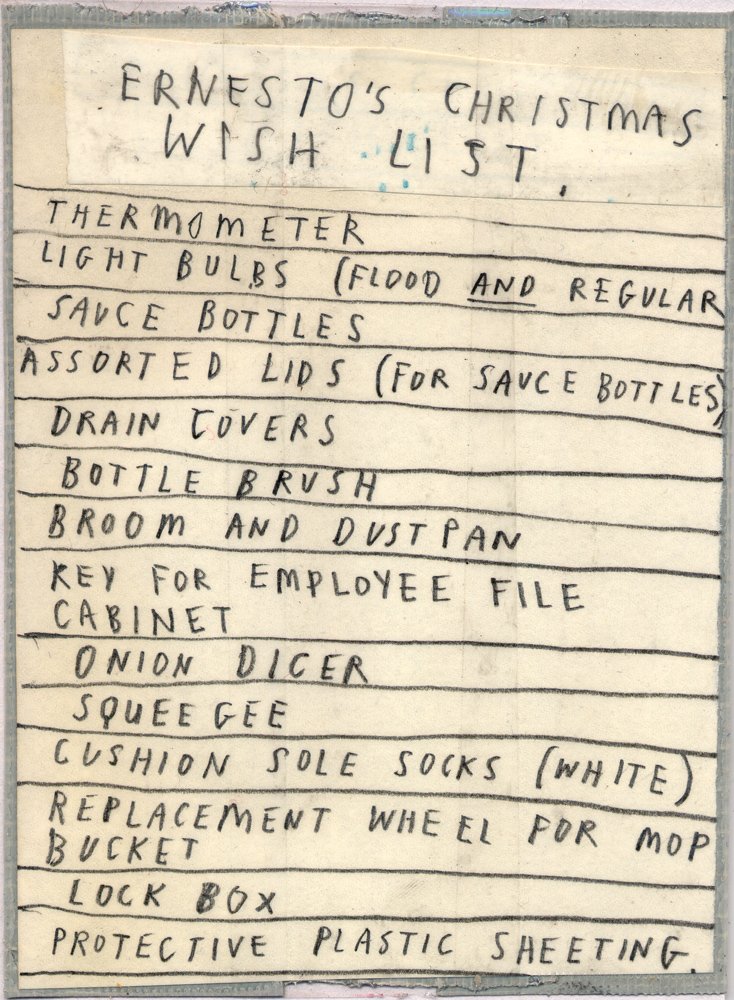 ERNESTO'S CHRISTMAS
WISH LIST.
THERMOMETER
LIGHT BULBS (FLOOD AND REGULAR
SAUCE BOTTLES
ASSORTED LIDS (FOR SAUCE BOTTLES)
DRAIN COVERS
BOTTLE BRUSH
BROOM AND DUSTPAN
KEY FOR EMPLOYEE FILE
CABINET
ONION DICER
SQUEEGEE
CUSHION SOLE SOCKS (WHITE)
REPLACEMENT WHEEL FOR MOP
BUCKET
LOCK BOX
PROTECTIVE PLASTIC SHEETING.